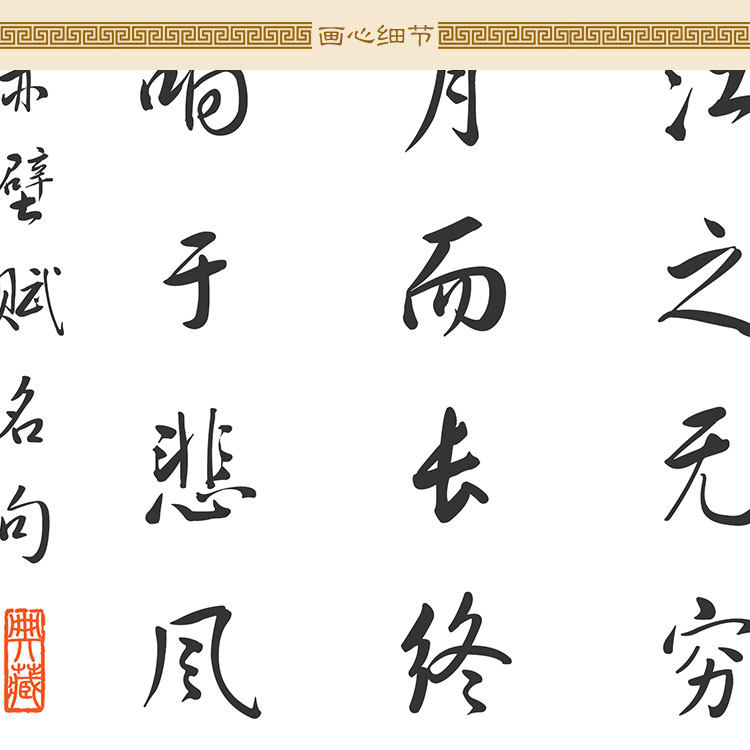 画心细节
江之无穷
月而长终
响于悲风
赤壁赋名句
典藏